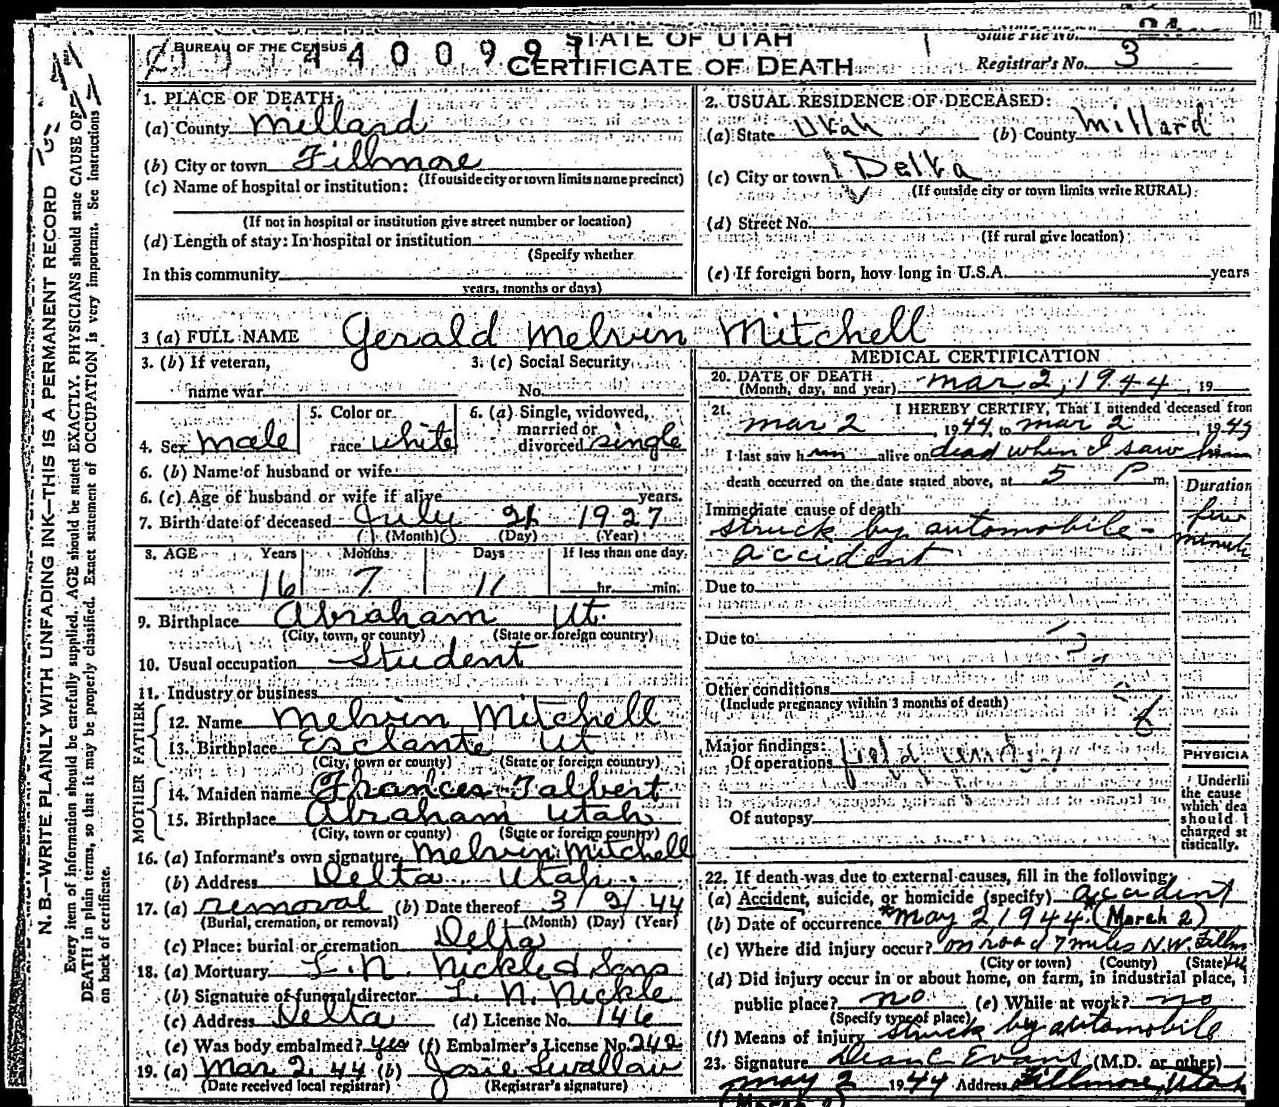 BUREAU OF THE CENSUS
STATE OF UTAH
CERTIFICATE OF DEATH
State File No. 24
Registrar's No. 3
N. B.—WRITE PLAINLY WITH UNFADING INK—THIS IS A PERMANENT RECORD
Every item of information should be carefully supplied. AGE should be stated EXACTLY. PHYSICIANS should state CAUSE OF
DEATH in plain terms, so that it may be properly classified. Exact statement of OCCUPATION is very important. See instructions
on back of certificate.
1. PLACE OF DEATH:
(a) County Millard
(b) City or town Fillmore
(If outside city or town limits name precinct)
(c) Name of hospital or institution:
(If not in hospital or institution give street number or location)
(d) Length of stay: In hospital or institution
(Specify whether
In this community
years, months or days)
2. USUAL RESIDENCE OF DECEASED:
(a) State Utah (b) County Millard
(c) City or town Delta
(If outside city or town limits write RURAL)
(d) Street No.
(If rural give location)
(e) If foreign born, how long in U.S.A. years
3 (a) FULL NAME Gerald Melvin Mitchell
3. (b) If veteran,
name war
3. (c) Social Security
No.
4. Sex male
5. Color or
race white
6. (a) Single, widowed,
married or
divorced single
6. (b) Name of husband or wife
6. (c) Age of husband or wife if alive years.
7. Birth date of deceased July 21 1927
(Month) (Day) (Year)
8. AGE Years Months Days If less than one day
16 7 11 hr. min.
9. Birthplace Abraham Ut.
(City, town, or county) (State or foreign country)
10. Usual occupation Student
11. Industry or business
FATHER
12. Name Melvin Mitchell
13. Birthplace Esclante Ut
(City, town or county) (State or foreign country)
MOTHER
14. Maiden name Frances Talbert
15. Birthplace Abraham Utah
(City, town or county) (State or foreign country)
16. (a) Informant's own signature Melvin Mitchell
(b) Address Delta Utah
17. (a) removal (b) Date thereof 3/2/44
(Burial, cremation, or removal) (Month) (Day) (Year)
(c) Place: burial or cremation Delta
18. (a) Mortuary L. N. Nickle & Sons
(b) Signature of funeral director L. N. Nickle
(c) Address Delta (d) License No. 146
(e) Was body embalmed? yes (f) Embalmer's License No. 242
19. (a) Mar 2. 44 (b) Josie Swallow
(Date received local registrar) (Registrar's signature)
MEDICAL CERTIFICATION
20. DATE OF DEATH
(Month, day, and year) mar 2, 1944, 19
21. I HEREBY CERTIFY, That I attended deceased from
mar 2, 1944, to mar 2, 1944
I last saw him alive on dead when I saw him
death occurred on the date stated above, at 5 P m.
Duration
Immediate cause of death
struck by automobile - few
accident minute
Due to
Due to
Other conditions
(Include pregnancy within 3 months of death)
Major findings:
Of operations
Of autopsy
PHYSICIA
Underli
the cause
which dea
should
charged st
tistically.
22. If death was due to external causes, fill in the following
(a) Accident, suicide, or homicide (specify) accident
(b) Date of occurrence *May 2 1944. (March 2)
(c) Where did injury occur? on road 7 miles N.W. Fillm
(City or town) (County) (State)
(d) Did injury occur in or about home, on farm, in industrial place, i
public place? no (e) While at work? no
(Specify type of place)
(f) Means of injury struck by automobile
23. Signature Dean C Evans (M.D. or other)
may 2 1944 Address Fillmore, Utah
(March 2)